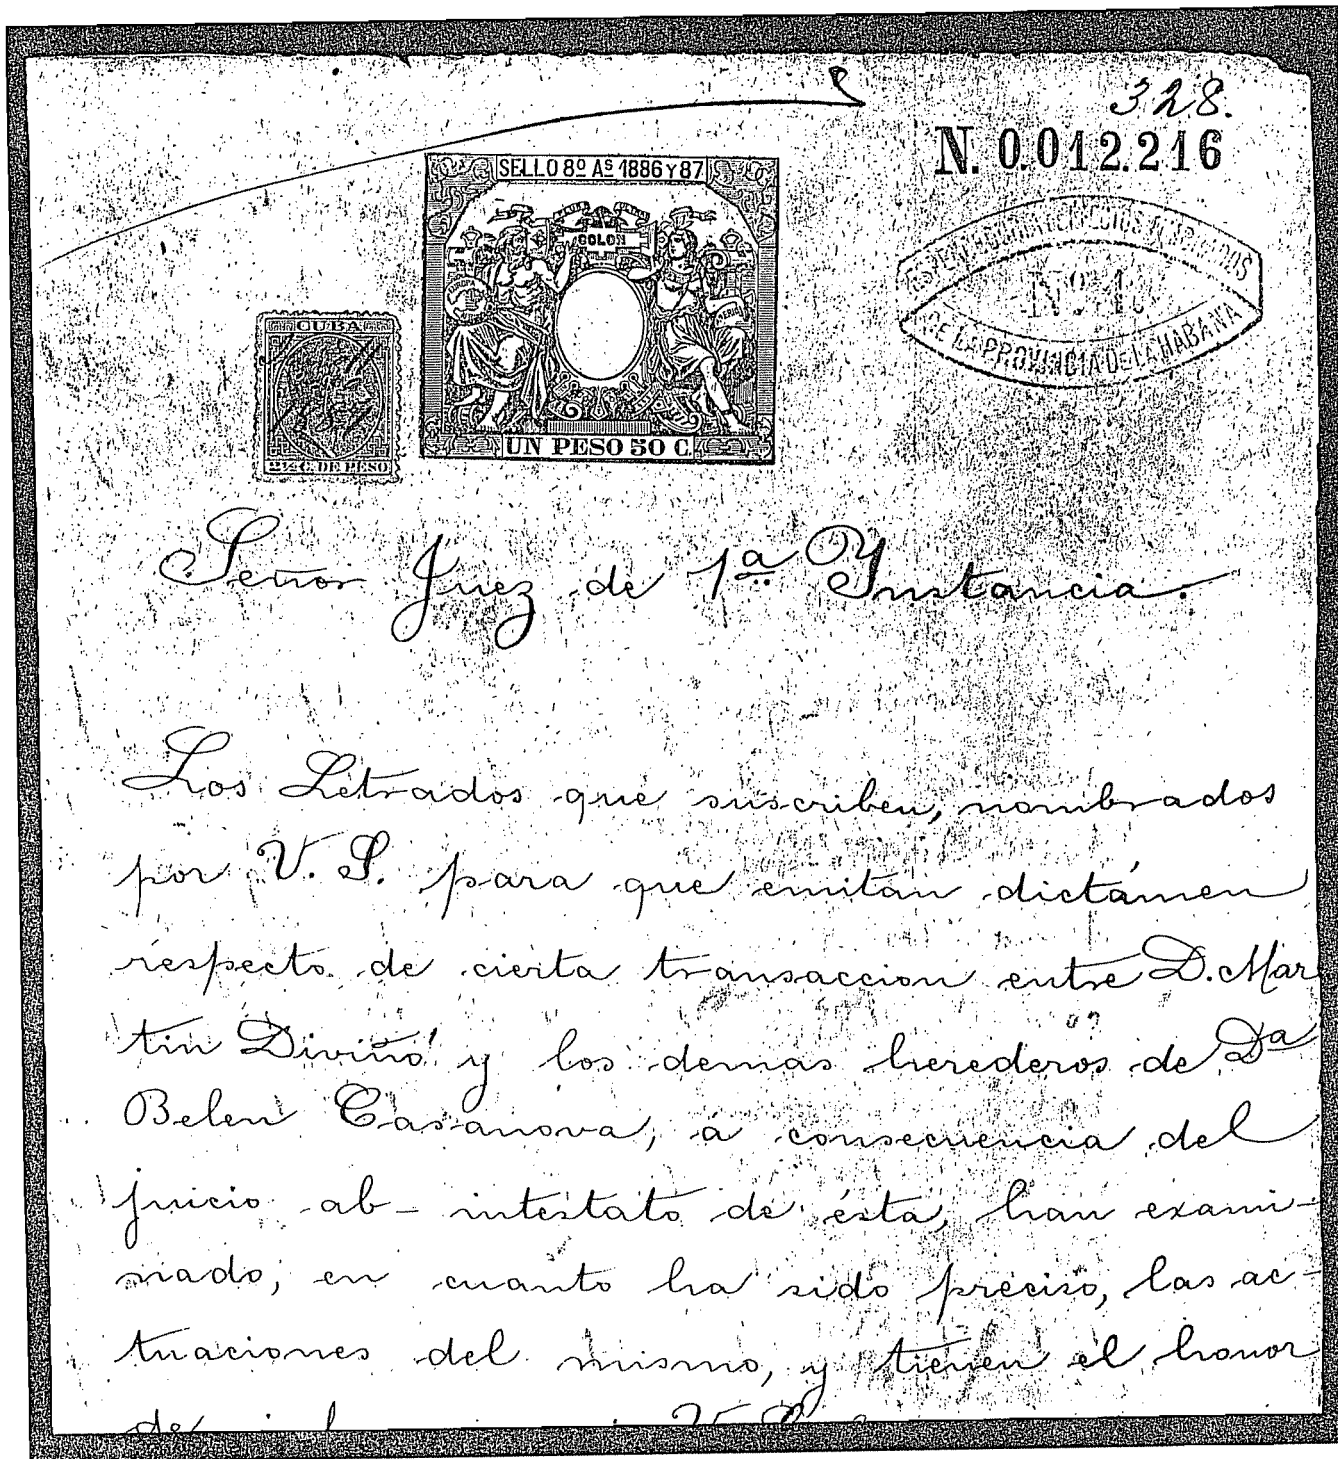 328.
N. 0.012.216
SELLO 8º As 1886 Y 87
COLON
EFECTOS TIMBRADOS
Nº 1.
DE LA PROVINCIA DE LA HABANA
CUBA
1887
2½ C. DE PESO
UN PESO 50 C.
Señor Juez de 1ª Ynstancia.
Los Letrados que suscriben, nombrados
por V. S. para que emitan dictámen
respecto de cierta transaccion entre D. Mar
tin Diviñó y los demas herederos de Dª
Belen Casanova, á consecuencia del
juicio ab-intestato de ésta, han exami-
nado, en cuanto ha sido preciso, las ac-
tuaciones del mismo, y tienen el honor
de V. S.